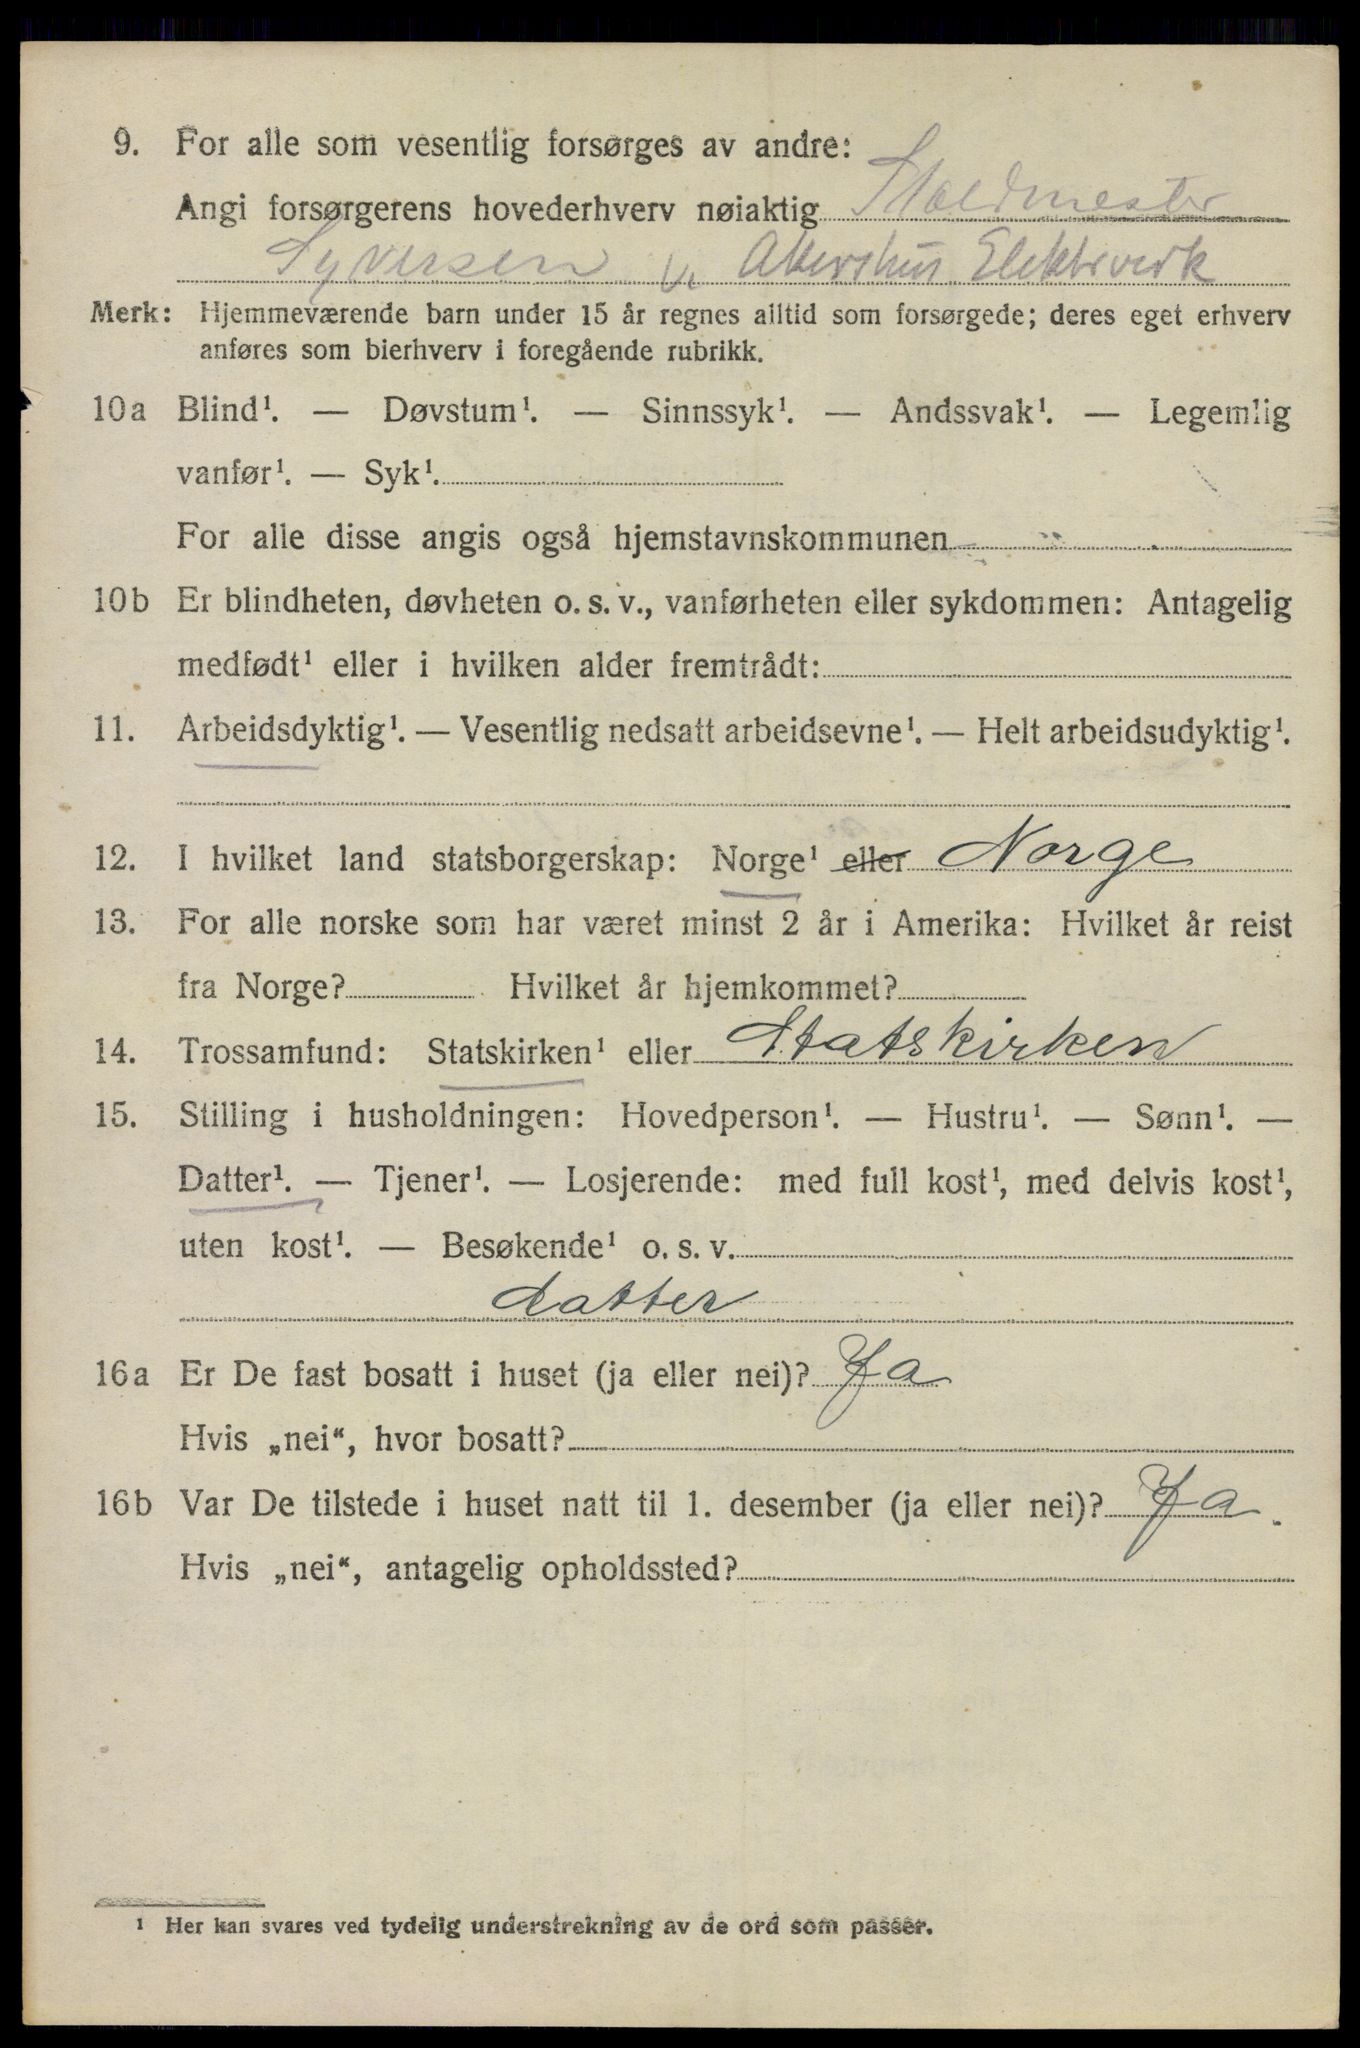 9. For alle som vesentlig forsørges av andre:
Angi forsørgerens hovederhverv nøiaktig
Syversen v. Akershus Elektrverk
Merk: Hjemmeværende barn under 15 år regnes alltid som forsørgede; deres eget erhverv
anføres som bierhverv i foregående rubrikk.
10a Blind¹. — Døvstum¹. — Sinnssyk¹. — Andssvak¹. — Legemlig
vanfør¹. — Syk¹.
For alle disse angis også hjemstavnskommunen
10b Er blindheten, døvheten o. s. v., vanførheten eller sykdommen: Antagelig
medfødt¹ eller i hvilken alder fremtrådt:
11. Arbeidsdyktig¹. — Vesentlig nedsatt arbeidsevne¹. — Helt arbeidsudyktig¹.
12. I hvilket land statsborgerskap: Norge¹ eller Norge
13. For alle norske som har været minst 2 år i Amerika: Hvilket år reist
fra Norge? Hvilket år hjemkommet?
14. Trossamfund: Statskirken¹ eller Statskirken
15. Stilling i husholdningen: Hovedperson¹. — Hustru¹. — Sønn¹. —
Datter¹. — Tjener¹. — Losjerende: med full kost¹, med delvis kost¹,
uten kost¹. — Besøkende¹ o. s. v.
datter
16a Er De fast bosatt i huset (ja eller nei)? Ja
Hvis „nei“, hvor bosatt?
16b Var De tilstede i huset natt til 1. desember (ja eller nei)? Ja.
Hvis „nei“, antagelig opholdssted?
1 Her kan svares ved tydelig understrekning av de ord som passer.